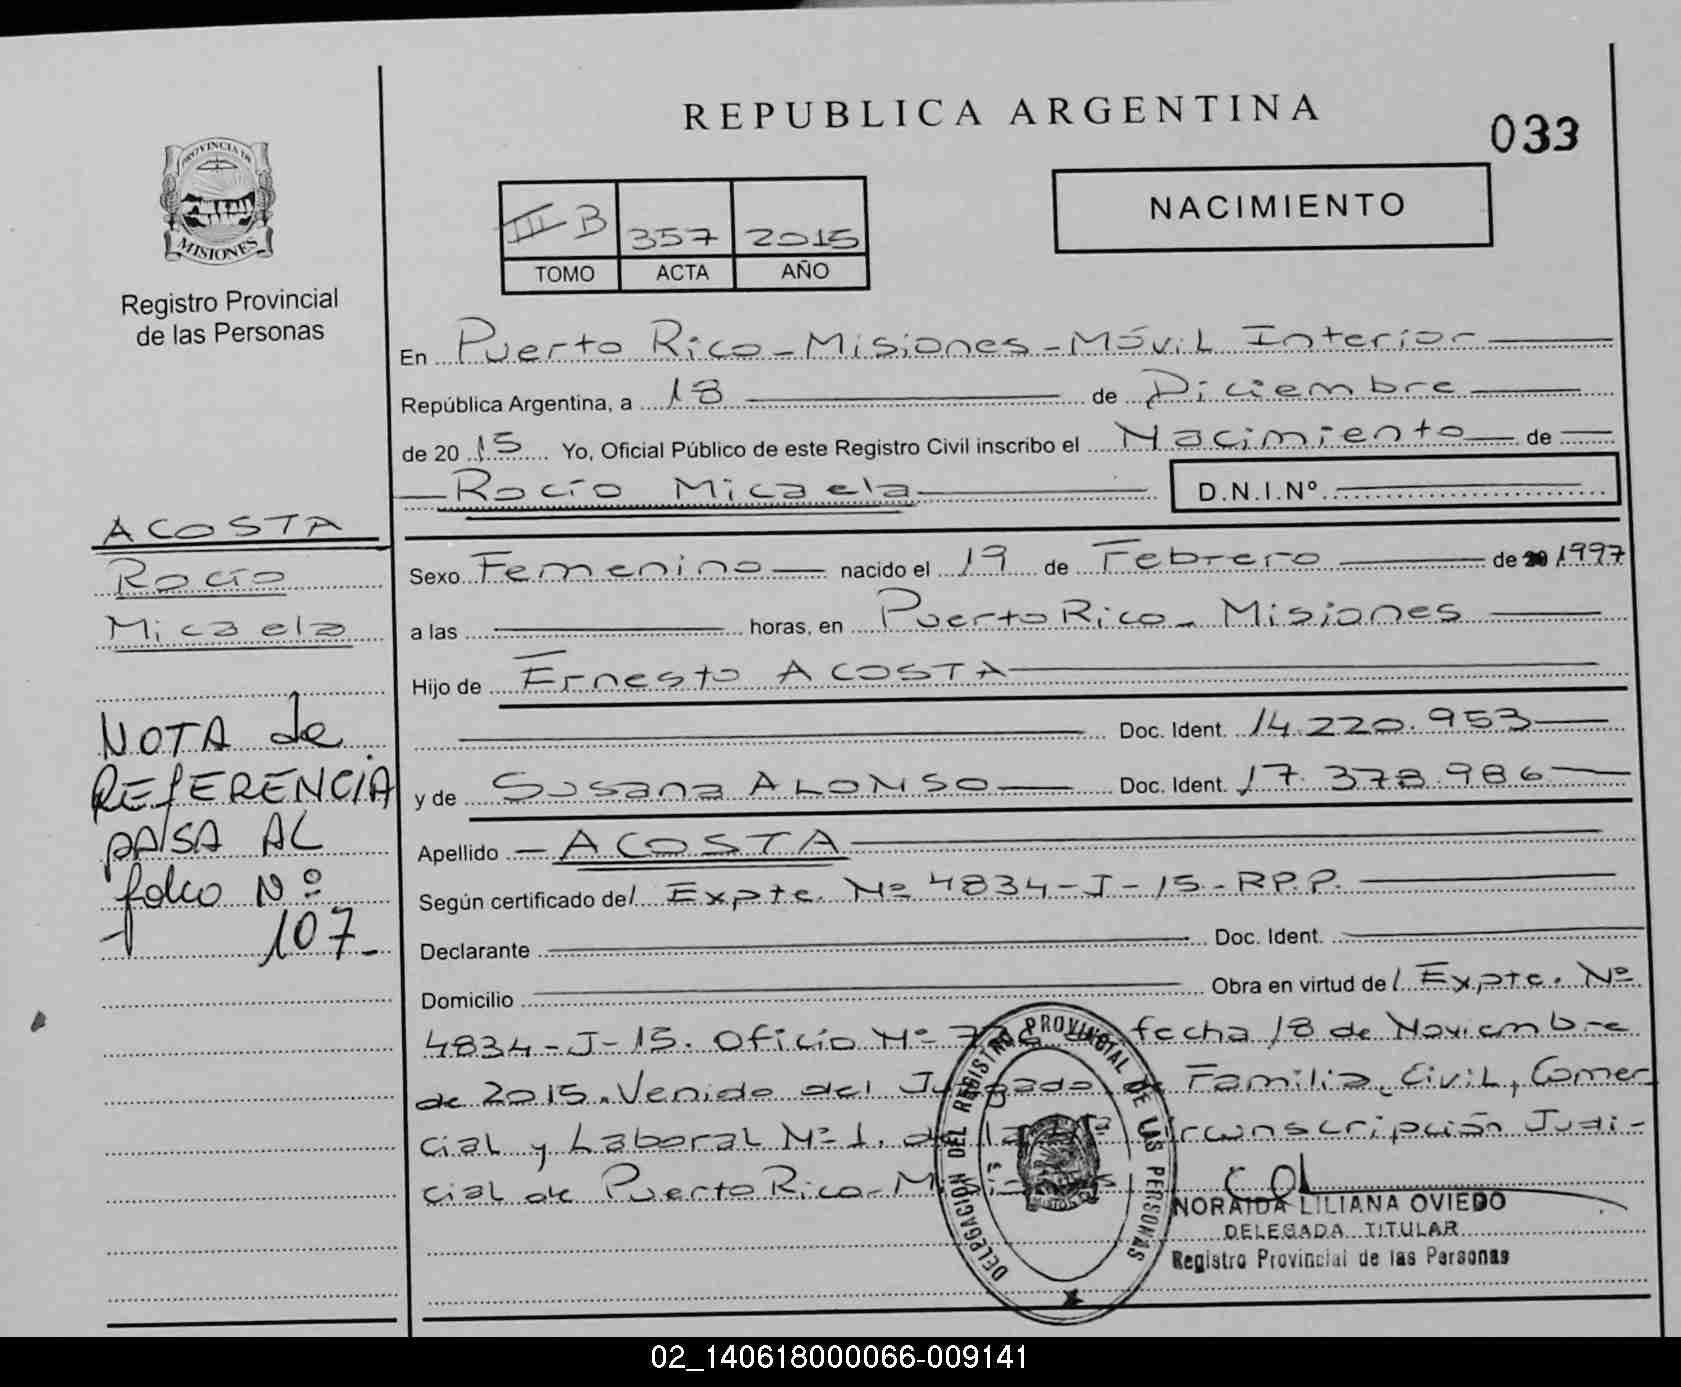 REPUBLICA ARGENTINA
033
PROVINCIA DE
MISIONES
Registro Provincial
de las Personas
III B 357 2015
TOMO ACTA AÑO
NACIMIENTO
En Puerto Rico - Misiones - Móvil Interior
República Argentina, a 18 de Diciembre
de 2015 Yo, Oficial Público de este Registro Civil inscribo el Nacimiento de
Rocío Micaela
D.N.I.Nº
ACOSTA
Rocío
Micaela
NOTA de
REFERENCIA
PASA AL
folio Nº
107
Sexo Femenino nacido el 19 de Febrero de 1997
a las horas, en Puerto Rico - Misiones
Hijo de Ernesto ACOSTA
Doc. Ident. 14.220.953
y de Susana ALONSO Doc. Ident. 17.378.986
Apellido ACOSTA
Según certificado del Expte. Nº 4834-J-15-RP.P.
Declarante Doc. Ident.
Domicilio Obra en virtud del Expte. Nº
4834-J-15. Oficio Nº fecha 18 de Noviembre
de 2015. Venido del Juzgado de Familia, Civil, Comer
cial y Laboral Nº 1. de la Circunscripción Judi-
cial de Puerto Rico -
DELEGACIÓN DEL REGISTRO PROVINCIAL DE LAS PERSONAS
NORAIDA LILIANA OVIEDO
DELEGADA TITULAR
Registro Provincial de las Personas
02_140618000066-009141